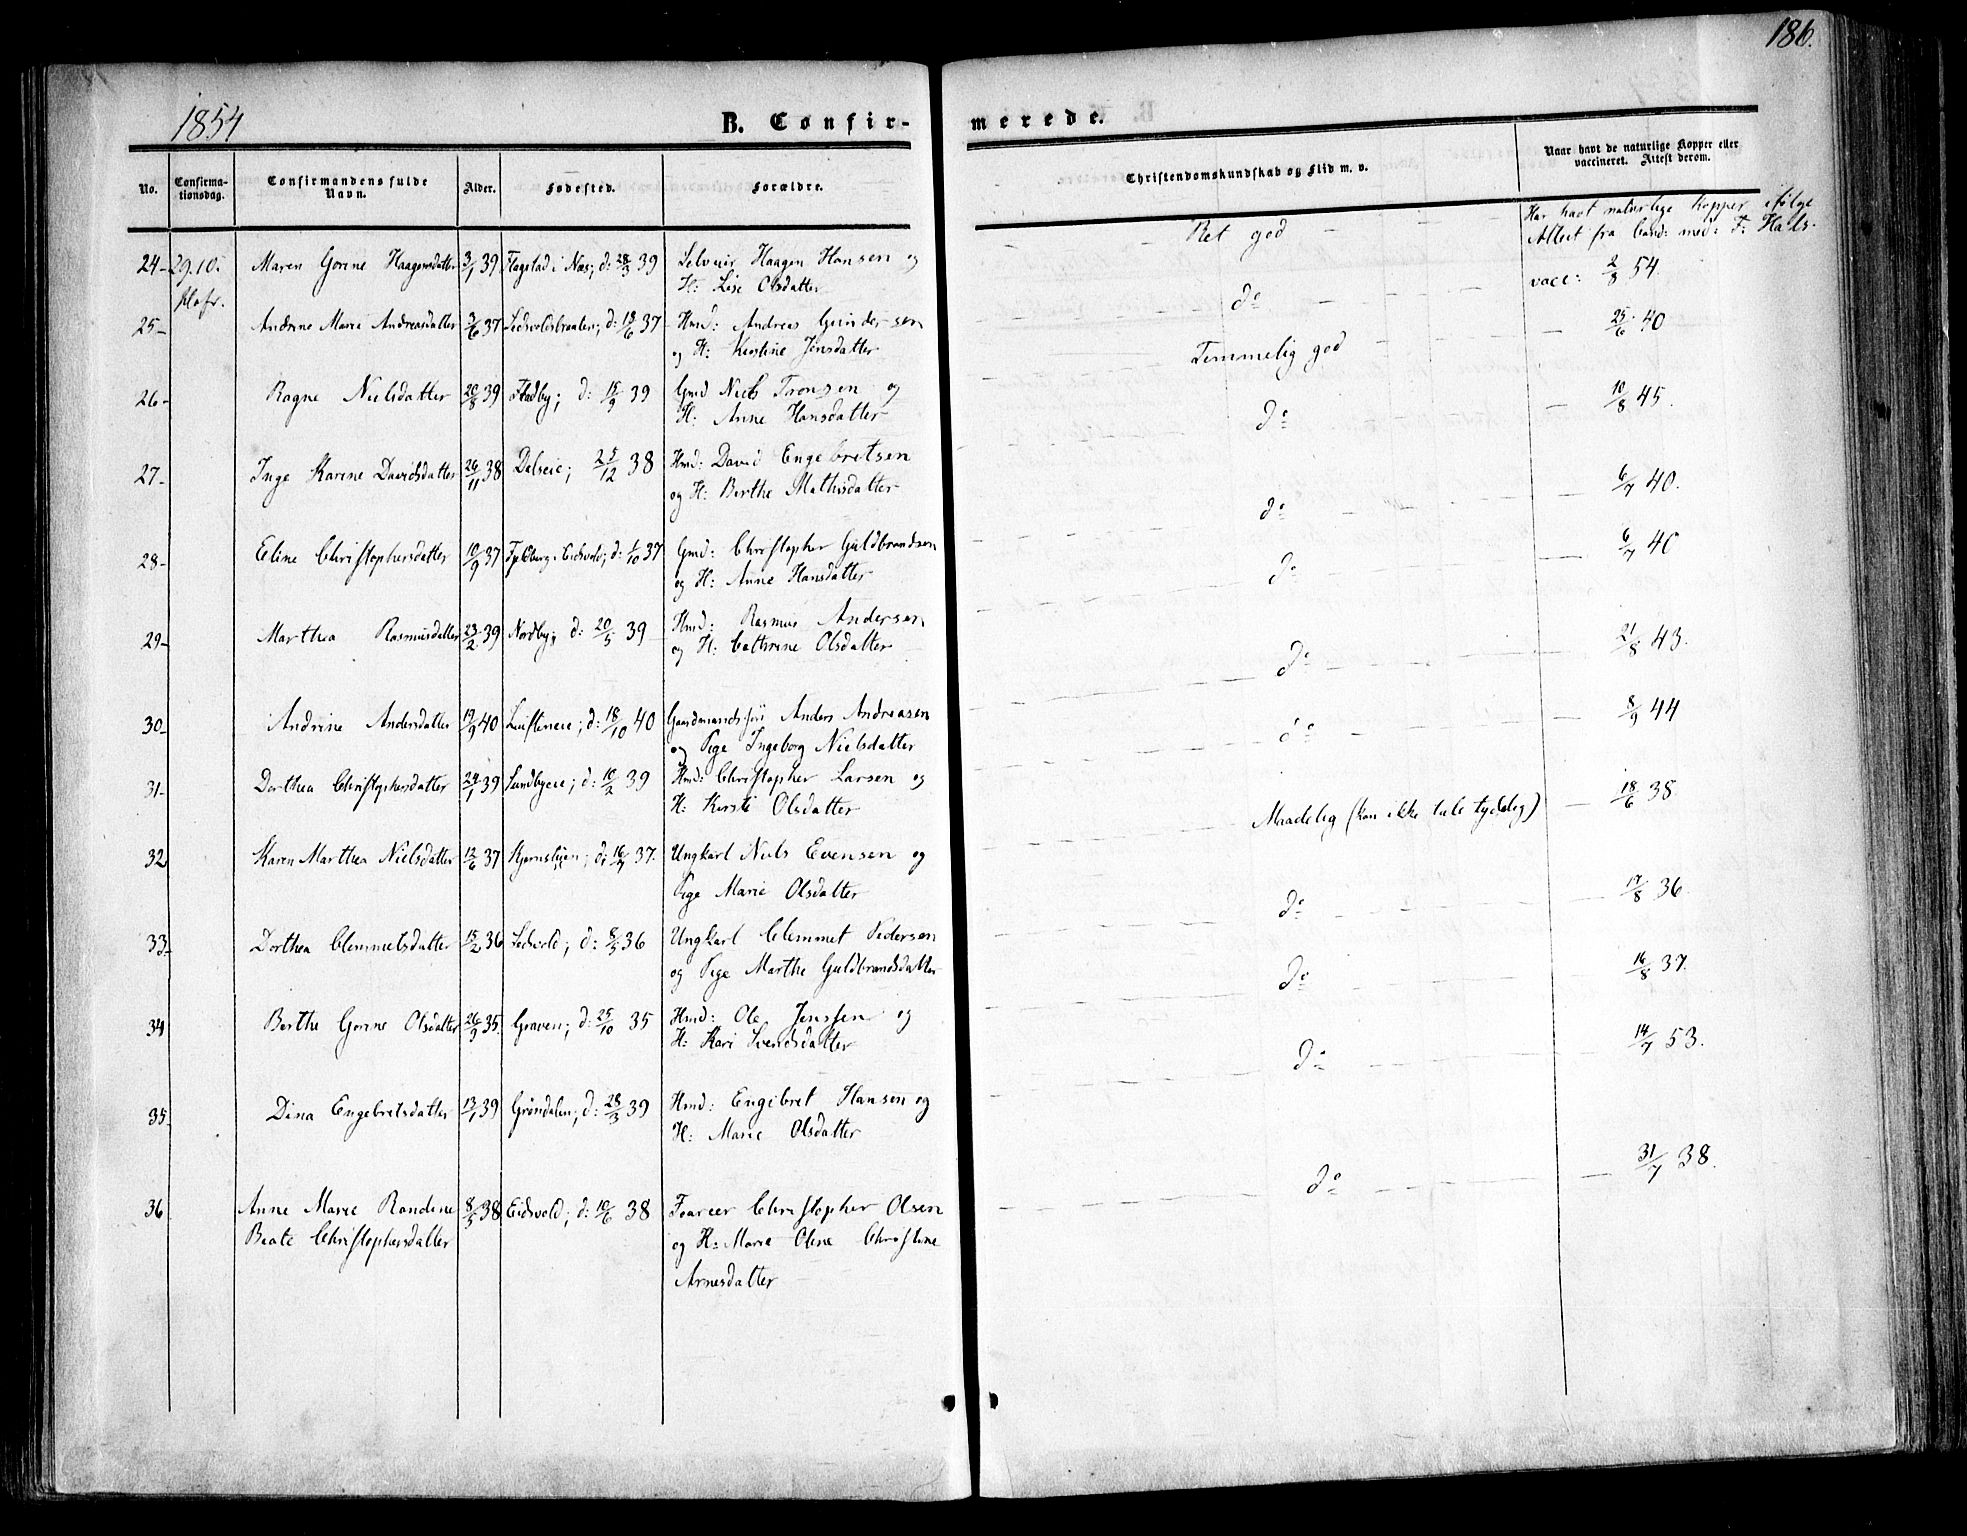 186.
1854
B. Confir-
merede.
No.
Confirma-
tionsdag.
Confirmandens fulde
Navn.
Alder.
Fødested.
Forældre.
Christendomskundskab og Flid m. v.
Naar havt de naturlige Kopper eller
vaccineret. Attest derom.
24 29.10. Maren Gorine Haagensdatter 3/1 39 Flagstad i Næs; d: 28/3 39 Selveier Haagen Hansen og
H: Lise Olsdatter
Ret god
Har havt naturlige Kopper ifølge
Attest fra Cand: med: F: Hals.
25 Andrine Marie Andreasdatter 3/6 37 d: 18/6 37 Hmd: Andreas Gundersen
og H: Kirstine Jensdatter
do
vacc: 2/3 54.
26 Ragne Nielsdatter 20/8 39 Stadby; d: 15/9 39 Gmd Niels Tronsen og
H: Anne Hansdatter
Temmelig god
25/6 40
27 Inge Karine Davidsdatter 26/11 38 Dalseie; 25/12 38 Hmd: David Engebretsen
og H: Berthe Mathisdatter
do
10/8 45.
28 Eline Christophersdatter 10/9 37 i Eidsvold; d: 1/10 37 Gmd: Christopher Guldbrandsen
og H: Anne Hansdatter
do
6/7 40.
29 Marthea Rasmusdatter 23/2 39 Nordby; d: 20/5 39 Hmd: Rasmus Andersen
og H: Cathrine Olsdatter
do
6/7 40
30 Andrine Andersdatter 19/9 40 d: 18/10 40 Gaardmandssøn Anders Andreasen
og Pige Ingeborg Nielsdatter
do
21/8 43.
31 Dorthea Christophersdatter 24/1 39 Sundbyeie; d: 10/2 39 Hmd: Christopher Larsen og
H: Kirsti Olsdatter
do
8/9 44
32 Karen Marthea Nielsdatter 12/6 37 d: 16/7 37. Ungkarl Niels Evensen og
Pige Marie Olsdatter
Maadelig (kan ikke tale tydelig)
18/6 38.
33 Dorthea Clemmetsdatter 15/2 36 d: 8/5 36 Ungkarl Clemmet Pedersen
og Pige Marthe Guldbrandsdatter
do
17/8 36.
34 Berthe Gorine Olsdatter 26/9 35. Graven; d: 25/10 35 Hmd: Ole Jenssen og
H: Kari Svendsdatter
do
16/8 37.
35 Dina Engebretsdatter 13/1 39 Grøndalen; d: 28/3 39 Hmd: Engebret Hansen og
H: Marie Olsdatter
do
14/7 53.
36 Anne Marie Randine 8/5 38 Eidsvold; d: 10/6 38 Foureer Christopher Olsen
Beate Christophersdatter og H: Marie Oline Christine
Arnesdatter
do
31/7 38.